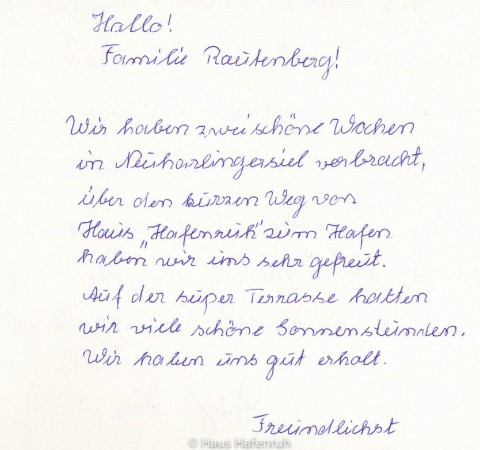 Hallo!
Familie Rautenberg!
Wir haben zwei schöne Wochen
in Neuharlingersiel verbracht,
über den kurzen Weg von
Haus „Hafenruh“ zum Hafen
haben wir uns sehr gefreut.
Auf der super Terrasse hatten
wir viele schöne Sonnenstunden.
Wir haben uns gut erholt.
Freundlichst
© Haus Hafenruh